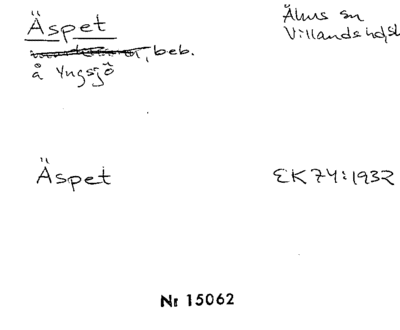 Äspet
Åhus sn
Villands hd, sk
, beb.
å Yngsjö
Äspet
EK 74:1932
Nr 15062